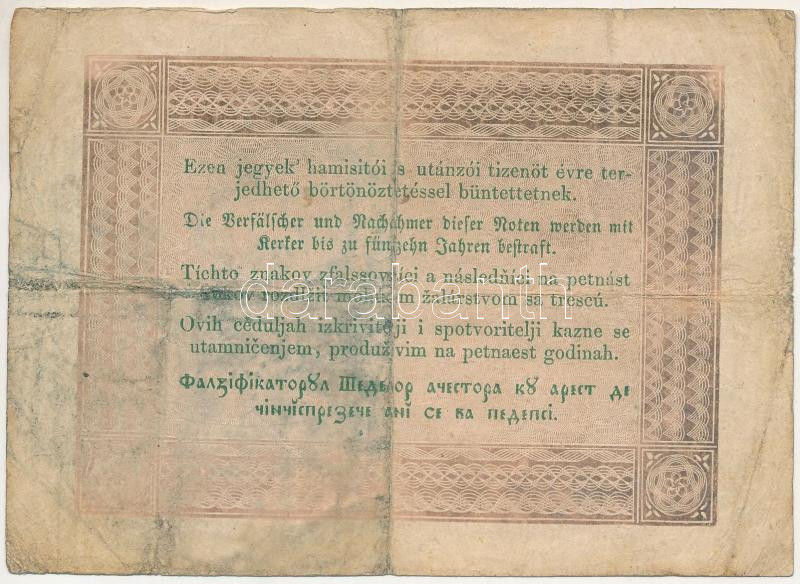 Ezen jegyek' hamisitói 's utánzói tizenöt évre ter-
jedhető börtönöztetéssel büntettetnek.
Die Verfälscher und Nachahmer dieser Noten werden mit
Kerker bis zu fünfzehn Jahren bestraft.
Tíchto znakov zfalssovňíci a následňíci na petnást
rokov rozdlžit žalárstvom sa trescú.
Ovih ceduljah izkrivitelji i spotvoritelji kazne se
utamničenjem, produživim na petnaest godinah.
Фалзіфікаторꙋл Шеделор ачестора кꙋ арест де
чінчіспрезече ані се ва педепсі.
darabanth